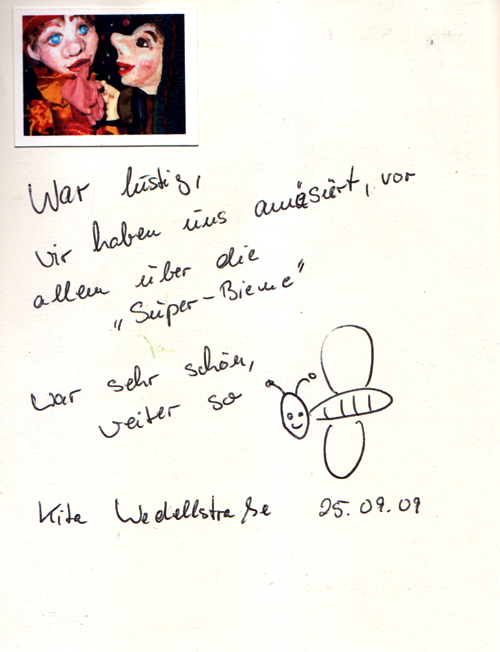 War lustig,
wir haben uns amüsiert, vor
allem über die
„Super-Biene"
War sehr schön,
weiter so
Kita Wedellstraße 25.09.09